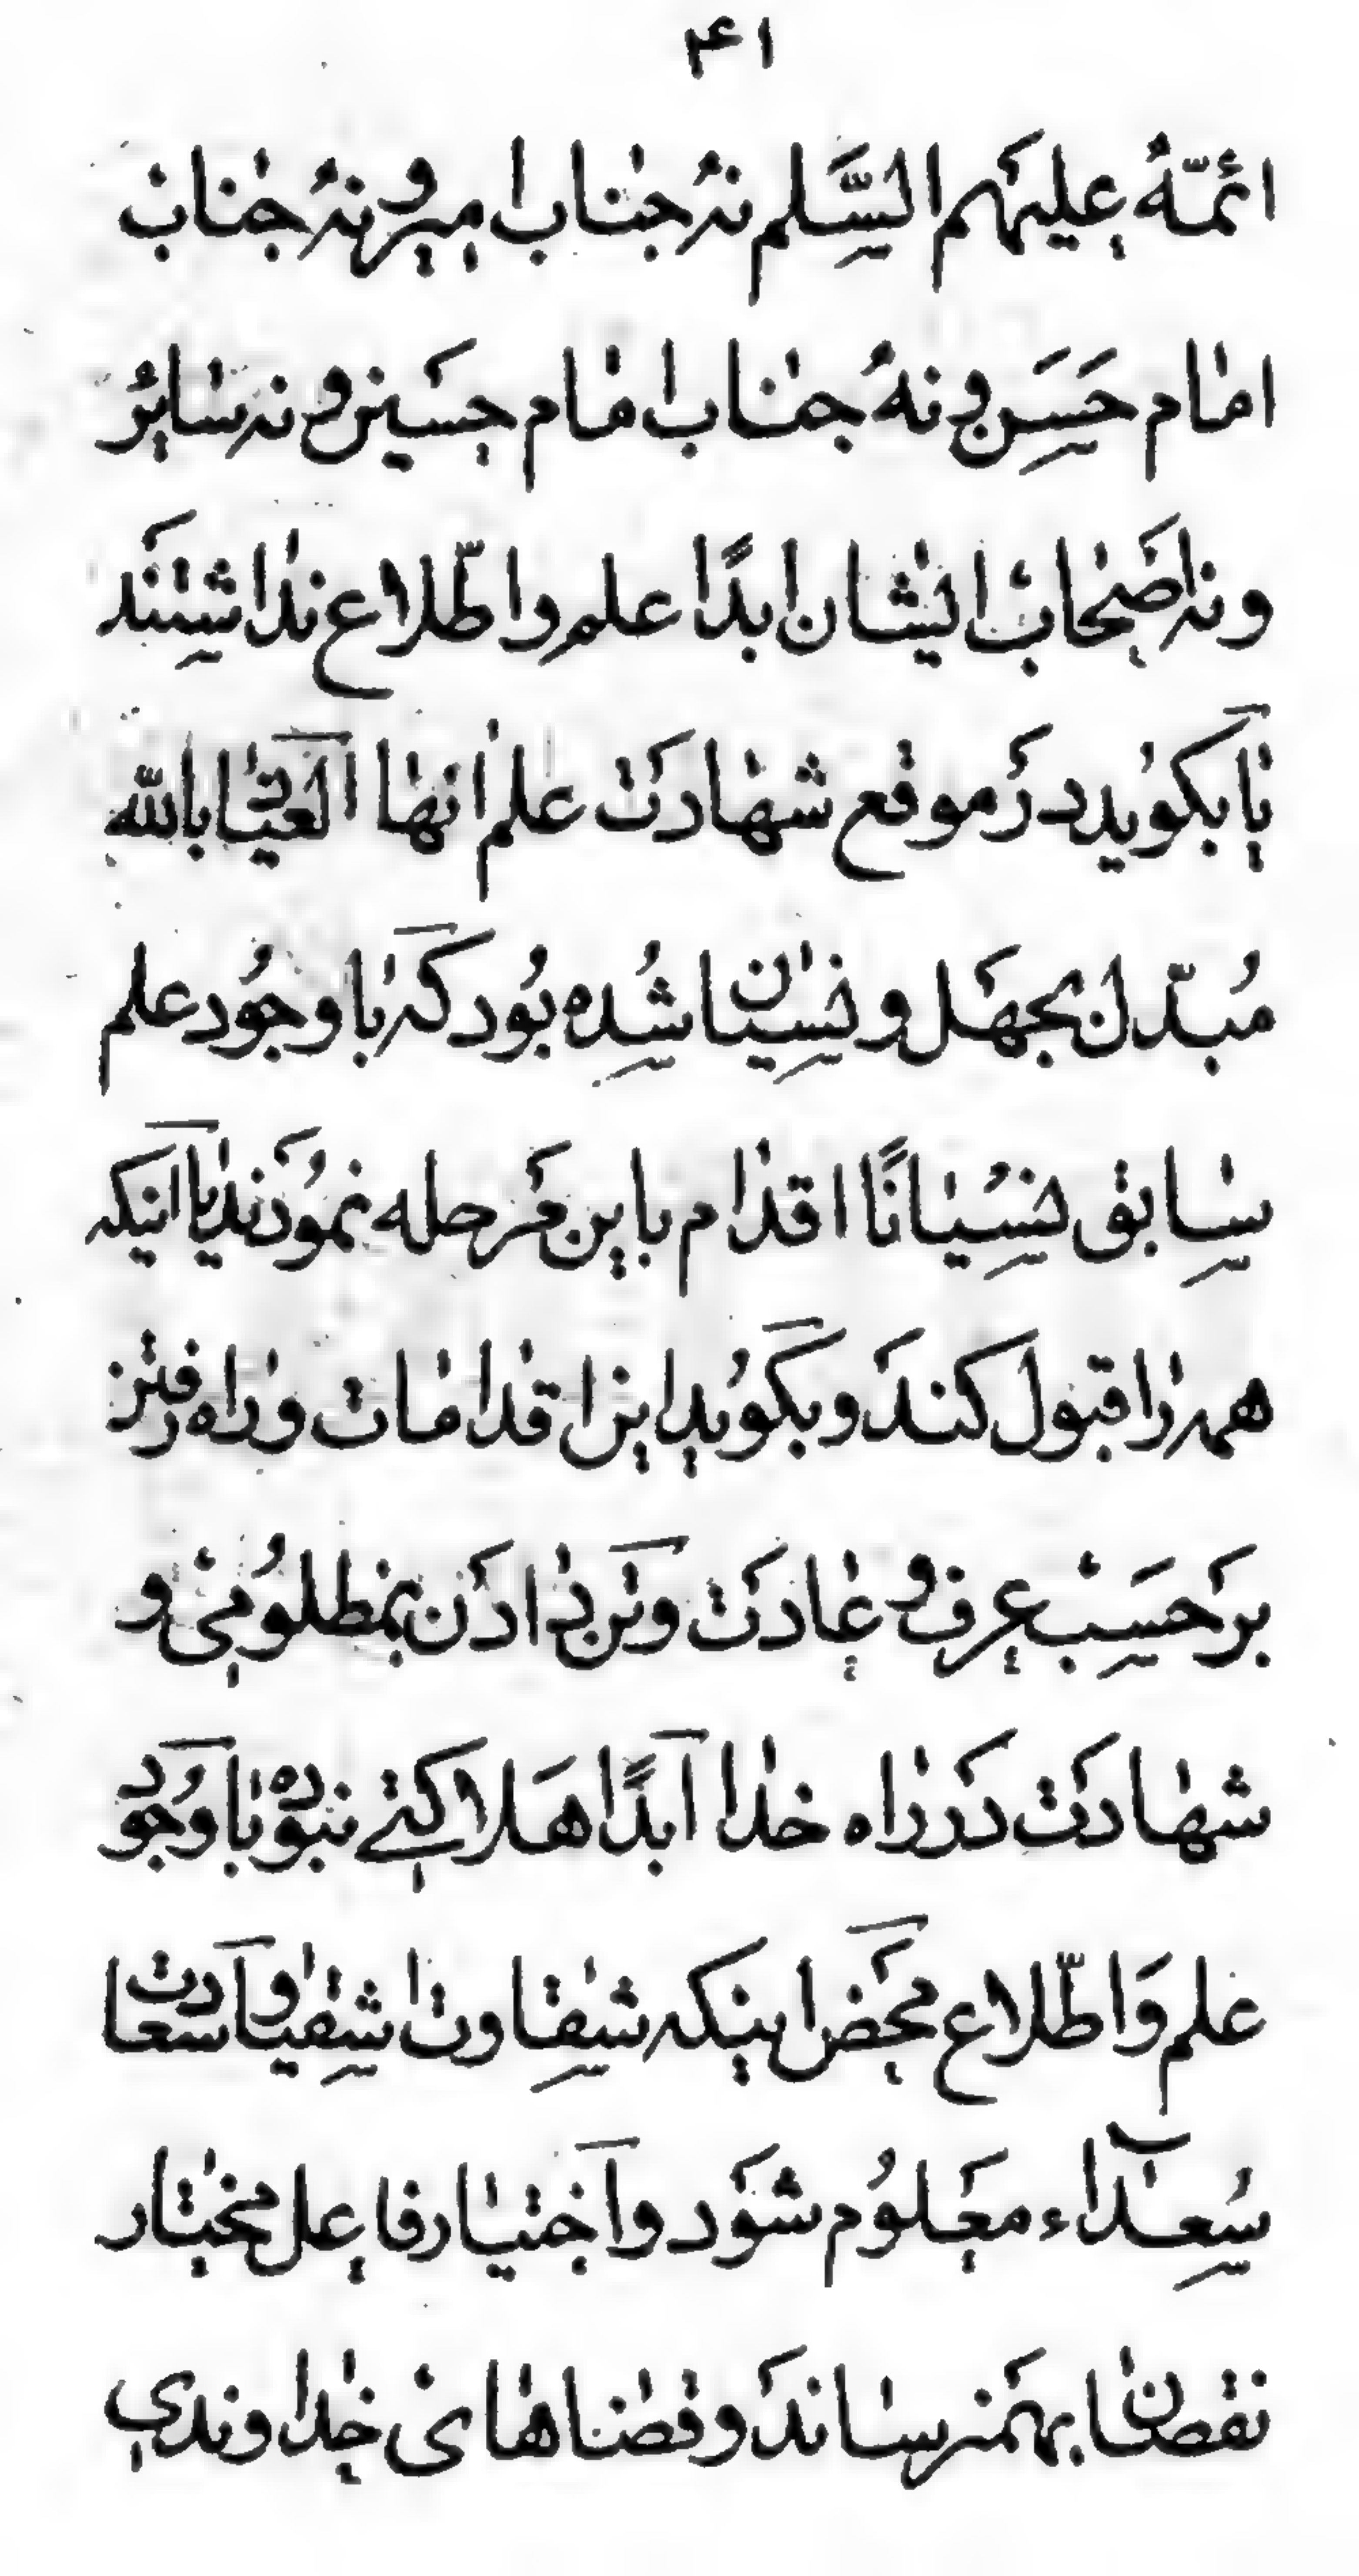 ۴۱
ائمّه علیهم السّلم نه جناب امیر و نه جناب
امام حسن و نه جناب امام حسین و نه سایر
و نه اصحاب ایشان ابدًا علم و اطّلاع نداشتند
یا بگوید در موقع شهادت علم انها العیاذ بالله
مبدّل بجهل و نسیان شده بود که با وجود علم
سابق نسیانًا اقدام باین مرحله نمودند یا اینکه
همه را قبول کند و بگوید این اقدامات و راه رفتن
بر حسب عرف و عادت و تن در دادن بمظلومی و
شهادت در راه خدا ابدًا هلاکتی نبوده با وجود
علم و اطّلاع محض اینکه شقاوت اشقیا و سعادت
سعدآء معلوم شود و اختیار فاعل مختار
نقصان بهم نرساند و قضاهای خداوندی